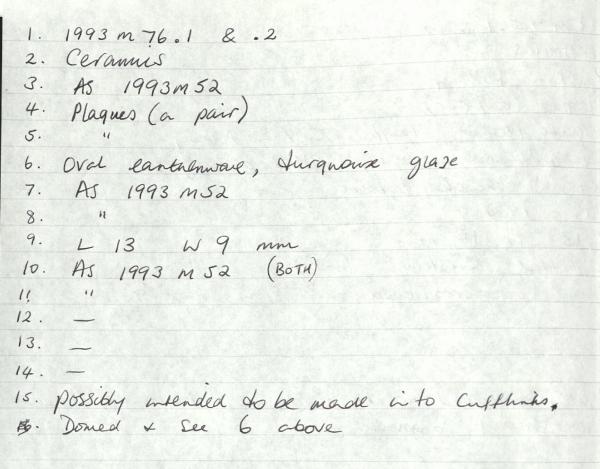 1. 1993 m 76.1 & .2
2. Ceramics
3. AS 1993 m 52
4. Plaques (a pair)
5. "
6. Oval earthenware, turquoise glaze
7. AS 1993 m 52
8. "
9. L 13 W 9 mm
10. AS 1993 m 52 (BOTH)
11. "
12. —
13. —
14. —
15. possibly intended to be made into Cufflinks.
16. Domed & See 6 above